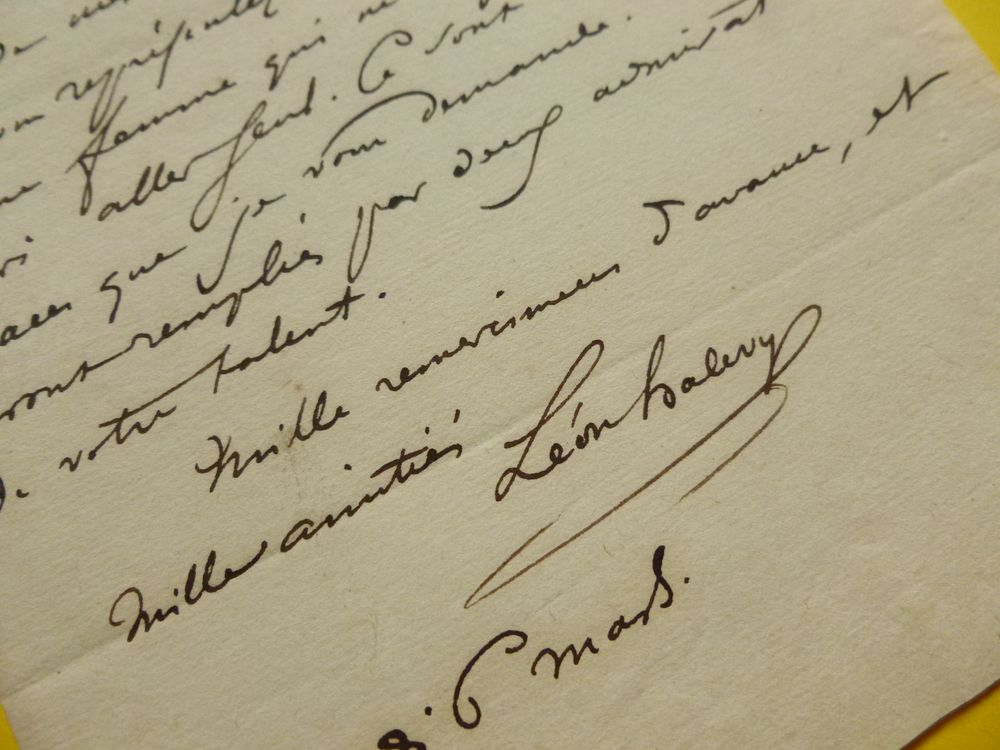 représenter
femme qui
aller seul. Ce sont
que je vous demande.
remplies par deux admirat
votre talent.
Mille remercimens d'avance, et
Mille amitiés Léon halevy
6 mars.